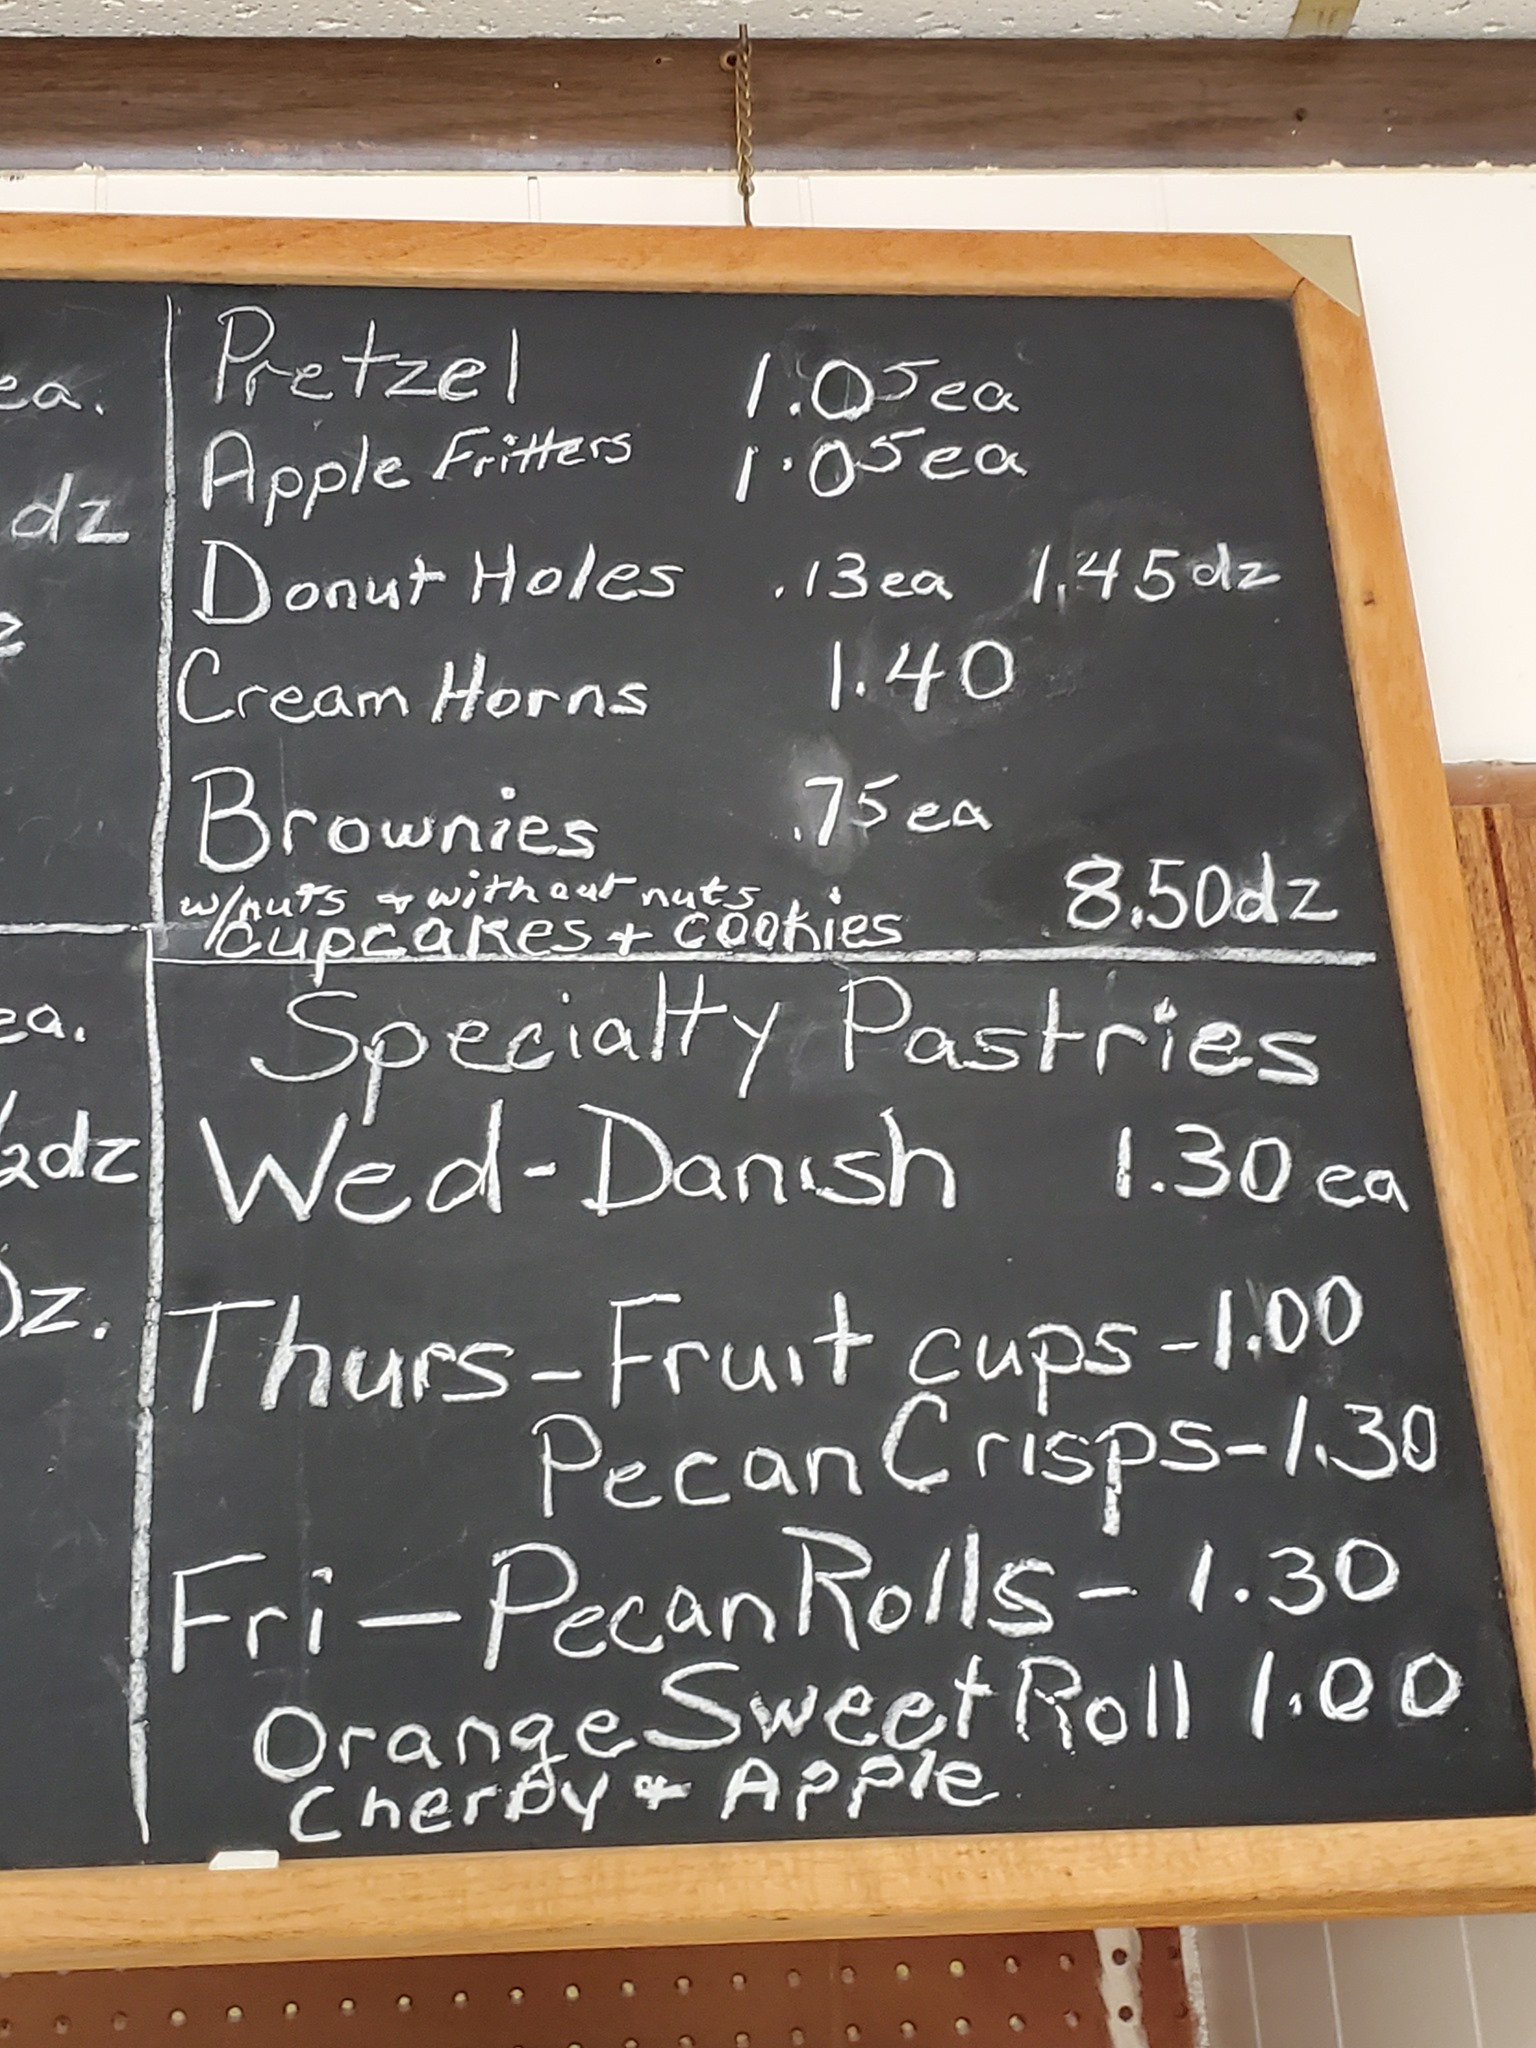 ea.
dz
Pretzel 1.05 ea
Apple Fritters 1.05 ea
Donut Holes .13 ea 1.45 dz
Cream Horns 1.40
Brownies .75 ea
w/nuts + without nuts
cupcakes + cookies 8.50 dz
ea.
1/2dz
Dz.
Specialty Pastries
Wed-Danish 1.30 ea
Thurs-Fruit cups-1.00
Pecan Crisps-1.30
Fri-Pecan Rolls-1.30
Orange Sweet Roll 1.00
Cherry + Apple